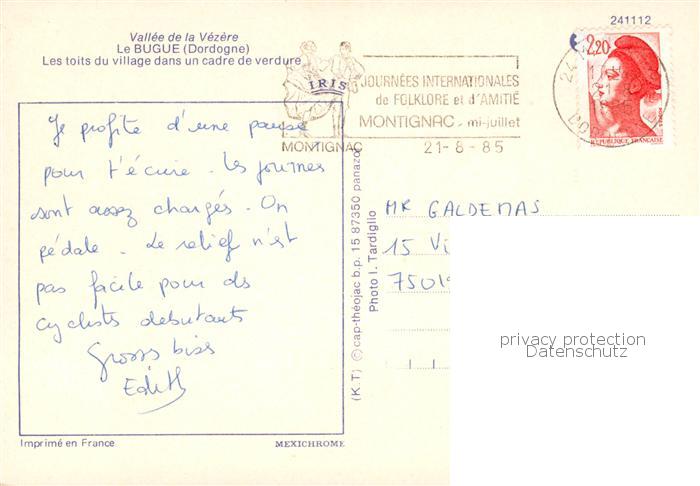 241112
Vallée de la Vézère
Le BUGUE (Dordogne)
Les toits du village dans un cadre de verdure
IRIS
MONTIGNAC
JOURNÉES INTERNATIONALES
de FOLKLORE et d'AMITIÉ
MONTIGNAC - mi-juillet
21-8-85
24
2,20
REPUBLIQUE FRANÇAISE
Je profite d'une pause
pour t'écrire. Les journes
sont assez chargés. On
pédale. Le relief n'est
pas facile pour ds
cyclists debutants
Grosss biss
Edith
MR GALDEMAS
15 Vi
75019
(K.T) ©cap-théojac b.p. 15 87350 panazol
Photo I. Tardiglio
privacy protection
Datenschutz
Imprimé en France
MEXICHROME